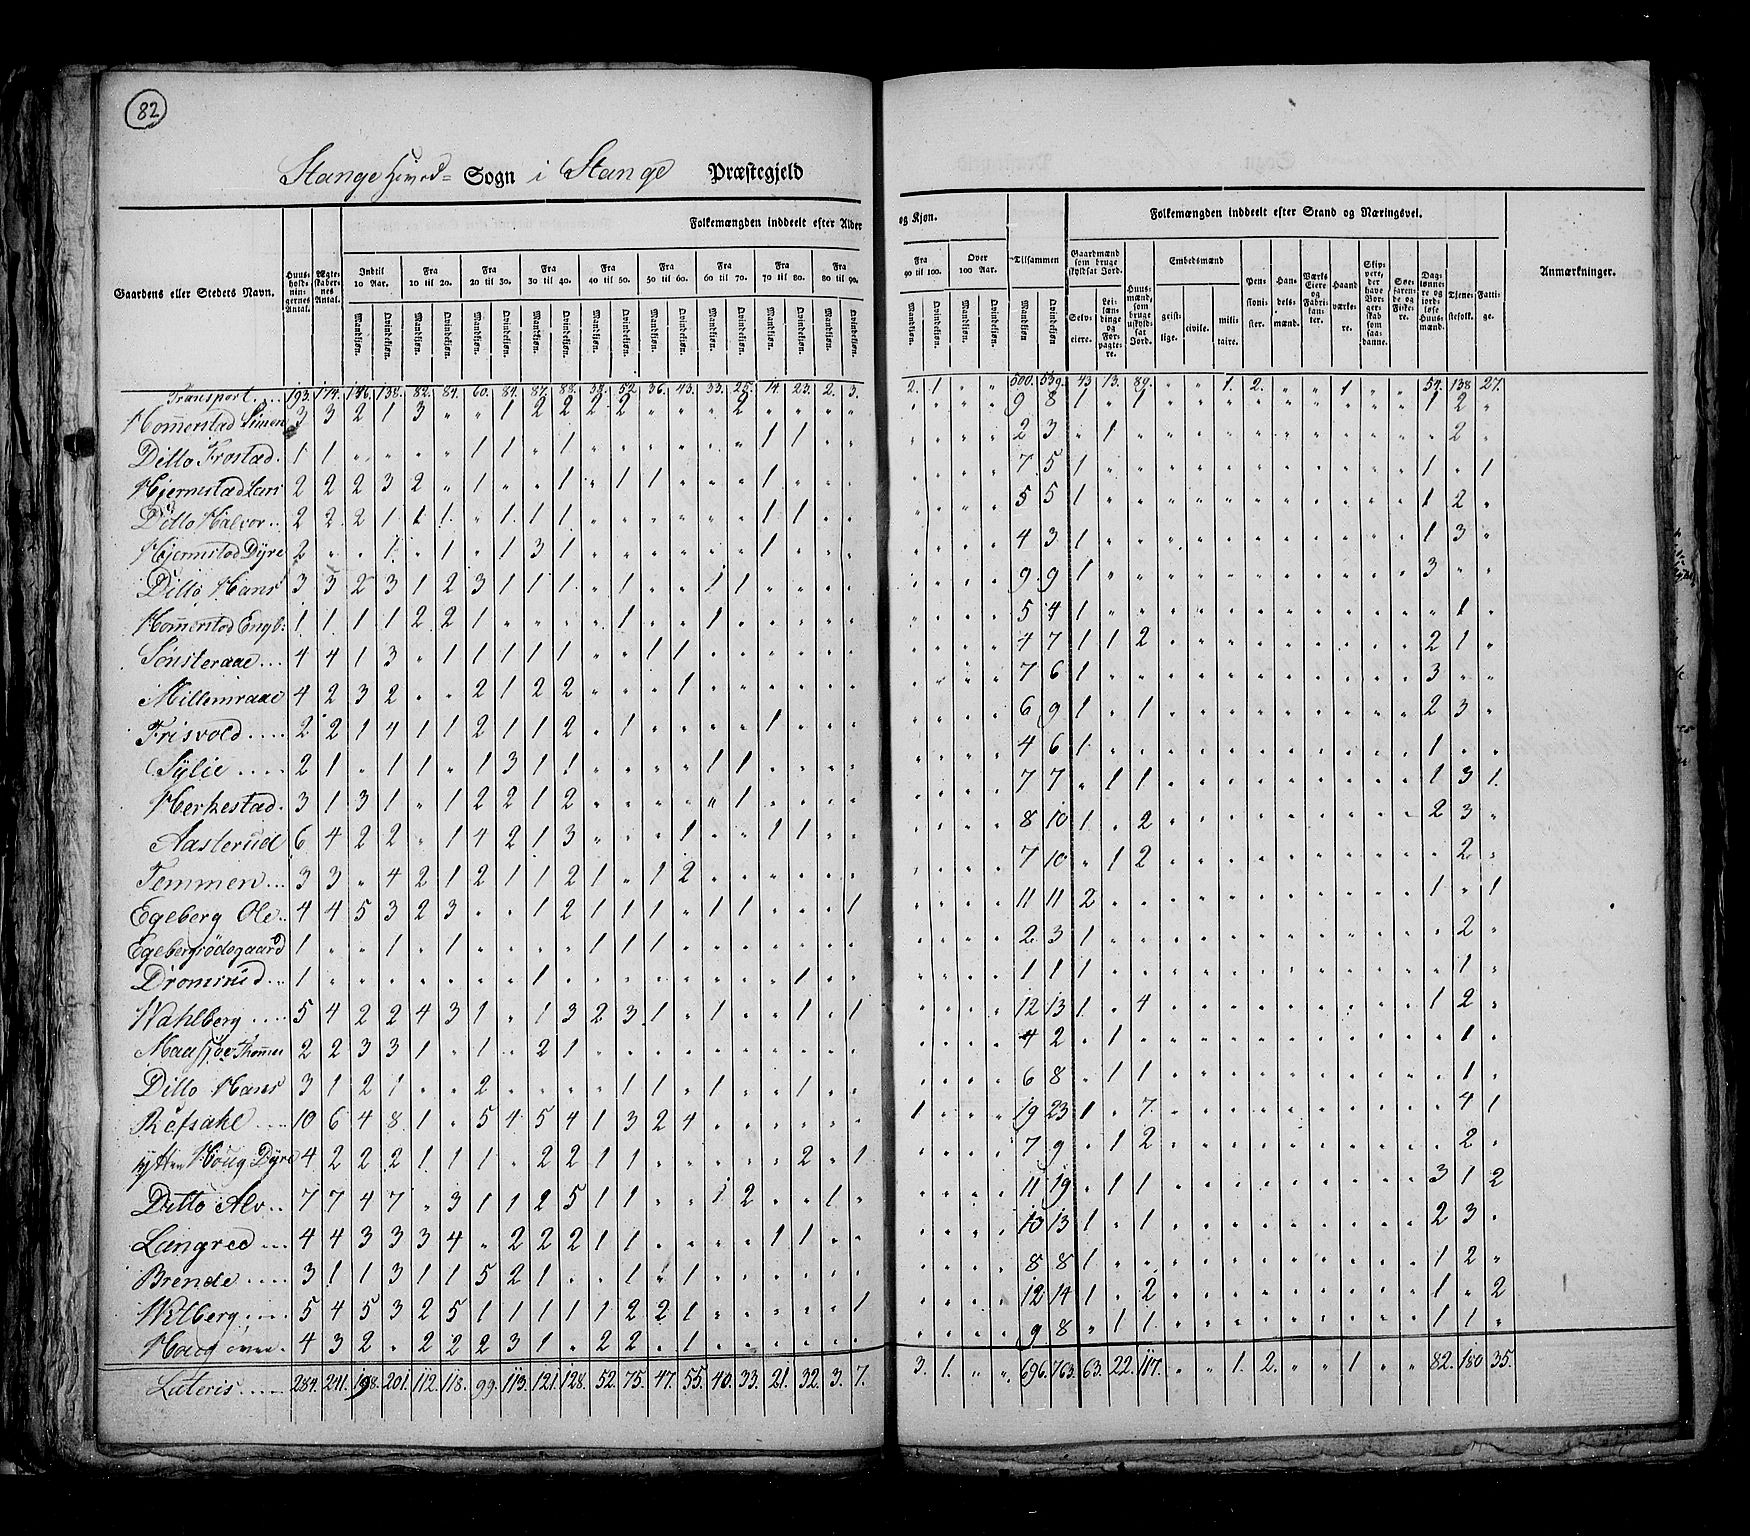 82
Stange Hoved= Sogn i Stange Præstegjeld
Folkemængden inddeelt efter Alder og Kjøn. Folkemængden inddeelt efter Stand og Næringsvei.
Gaardens eller Stedets Navn. Huusholdningernes Antal. Ægteskabernes Antal. Indtil 10 Aar. Fra 10 til 20. Fra 20 til 30. Fra 30 til 40. Fra 40 til 50. Fra 50 til 60. Fra 60 til 70. Fra 70 til 80. Fra 80 til 90. Fra 90 til 100. Over 100 Aar. Tilsammen Gaardmænd som bruge skyldsat Jord. Huusmænd, som bruge uskyldsat Jord. Embedsmænd Pensionister. Handelsmænd. Værks Eiere og Fabrikanter. Haandværkere. Skippere, der have Borgerskab som saadanne. Søefarende og Fiskere. Daglønnere og jordløse Huusmænd. Tjenestefolk. Fattige. Anmærkninger.
Mandkjøn. Qvindekjøn. Selveiere. Leilændinge og Forpagtere. geistlige. civile. militaire.
Transport 193. 174. 146. 138. 82. 84. 60. 84. 87. 88. 38. 52. 36. 43. 33. 25. 14. 23. 2. 3. 2. 1 " " 500. 539. 43 13. 89. " " 1. 2. " " 1 " " 54. 138 27.
Homerstad Simen 3 3 2 1 3 " " 1 2 2 2 2 " " " 2 " " " " " " " " 9 8 1 " 1 " " " " " " " " " 1 2 "
Ditto Frostad 1 1 " " " " 1 1 " 1 " " " " " " 1 1 " " " " " " 2 3 " 1 " " " " " " " " " " " 2 "
Hjermstad Lars 2 2 2 3 2 " 1 " " 1 " 1 1 " " " 1 " " " " " " " 7 5 1 " " " " " " " " " " " 1 " 1
Ditto Halvor 2 2 2 1 1 1 " 1 1 1 " " " " " " 1 1 " " " " " " 5 5 1 " " " " " " " " " " " 1 2 "
Hjermstad Dyre 2 " " 1 " 1 " 1 3 1 " " " " " " 1 " " " " " " " 4 3 1 " " " " " " " " " " " 1 3 "
Ditto Hans 3 3 2 3 1 2 3 1 1 1 " 1 " " 1 1 " " " " " " " " 9 9 1 " " " " " " " " " " " 3 " "
Homerstad Engb: 1 1 1 1 2 2 1 " " " " 1 " " 1 " " " " " " " " " 5 4 1 " " " " " " " " " " " " 1 "
Sønsteraae 4 4 1 3 " 1 1 1 1 1 " " 1 1 " " " " " " " " " " 4 7 1 1 2 " " " " " " " " " 2 1 "
Millemraae 4 2 3 2 " " 2 1 2 2 " " " 1 " " " " " " " " " " 7 6 1 " " " " " " " " " " " 3 " "
Frisvold 2 2 1 4 1 1 2 1 1 2 " 1 " " " " 1 " " " " " " " 6 9 1 " 1 " " " " " " " " " 2 3 "
Sylie 2 1 " 1 1 " 1 3 1 1 " " " " 1 1 " " " " " " " " 4 6 1 " " " " " " " " " " " 1 " "
Herkestad 3 1 3 1 " 1 2 2 1 2 " " " " " 1 " " " " " " " " 7 7 " 1 1 " " " " " " " " " 1 3 1
Aasterud 6 4 2 2 " 1 4 2 1 3 " " " 1 " " 1 1 " " " " " " 8 10 1 " 2 " " " " " " " " " 2 3 "
Temmen 3 3 " 4 2 1 2 1 1 2 1 " 1 2 " " " " " " " " " " 7 10 " 1 2 " " " " " " " " " " 2 "
Egeberg Ole 4 4 5 3 2 3 " " 1 2 1 1 1 " 1 1 " " " 1 " " " " 11 11 2 " " " " " " " " " " " 1 " 1
Egebergsødegaard 1 " " 1 " 1 " " " " 1 1 1 " " " " " " " " " " " 2 3 1 " " " " " " " " " " " " 2 "
Dromsrud 1 " " " " " " " 1 " " " " " " " " 1 " " " " " " 1 1 1 " " " " " " " " " " " " 1 "
Wahlberg 5 4 2 2 4 3 1 " 1 3 2 3 1 " 1 " " 1 " 1 " " " " 12 13 1 " 4 " " " " " " " " " 1 2 "
Maasjøe Thommes 2 2 3 3 1 " 1 " 2 1 " " " " " " " " " " " " " " 4 2 " 1 " " " " " " " " " " " 1 "
Ditto Hans 3 1 2 1 " " 2 " " " " 1 1 " 1 " " 1 " " " " " " 6 8 " 1 1 " " " " " " " " " " 1 "
Refsahl 10 6 4 8 1 " 5 4 5 4 1 3 2 4 " " " " " " 1 " " " 19 23 1 " 7 " " " " " " " " " " 4 1
Houg Dyre 4 2 2 2 1 1 1 " 2 2 1 1 " " " " " 2 " 1 " " " " 7 9 " 1 2 " " " " " " " " " " 2 "
Ditto Alv 7 7 4 7 " 3 1 1 2 5 1 1 " " 1 2 " " 1 " " " " " 11 19 " 1 1 " " " " " " " " " 3 1 2
Langree 4 4 3 3 3 4 " 2 2 2 1 1 " " " " 1 1 " " " " " " 13 13 1 " 1 " " " " " " " " " 2 3 "
Brende 3 1 1 3 1 1 5 2 1 " " 1 " 1 " " " " " " " " " " 8 8 1 " " " " " " " " " " " 1 2 "
Wetberg 5 4 5 3 2 5 1 1 1 1 1 2 2 1 " " " " " 1 " " " " 12 14 1 " 2 " " " " " " " " " 1 " 2
Houg øvre 4 3 2 " 2 2 2 3 1 " 2 2 " 1 " " " " " " " " " " 9 8 " 1 1 " " " " " " " " " 1 1 "
Lateris 284. 241. 198. 201. 112. 118. 99. 113. 121. 128. 52. 75. 47. 55. 40. 33. 21. 32. 3. 7. 3. 1. " " 696. 763. 63. 22. 117. " " 1. 2. " " 1 " " 82. 180 35.